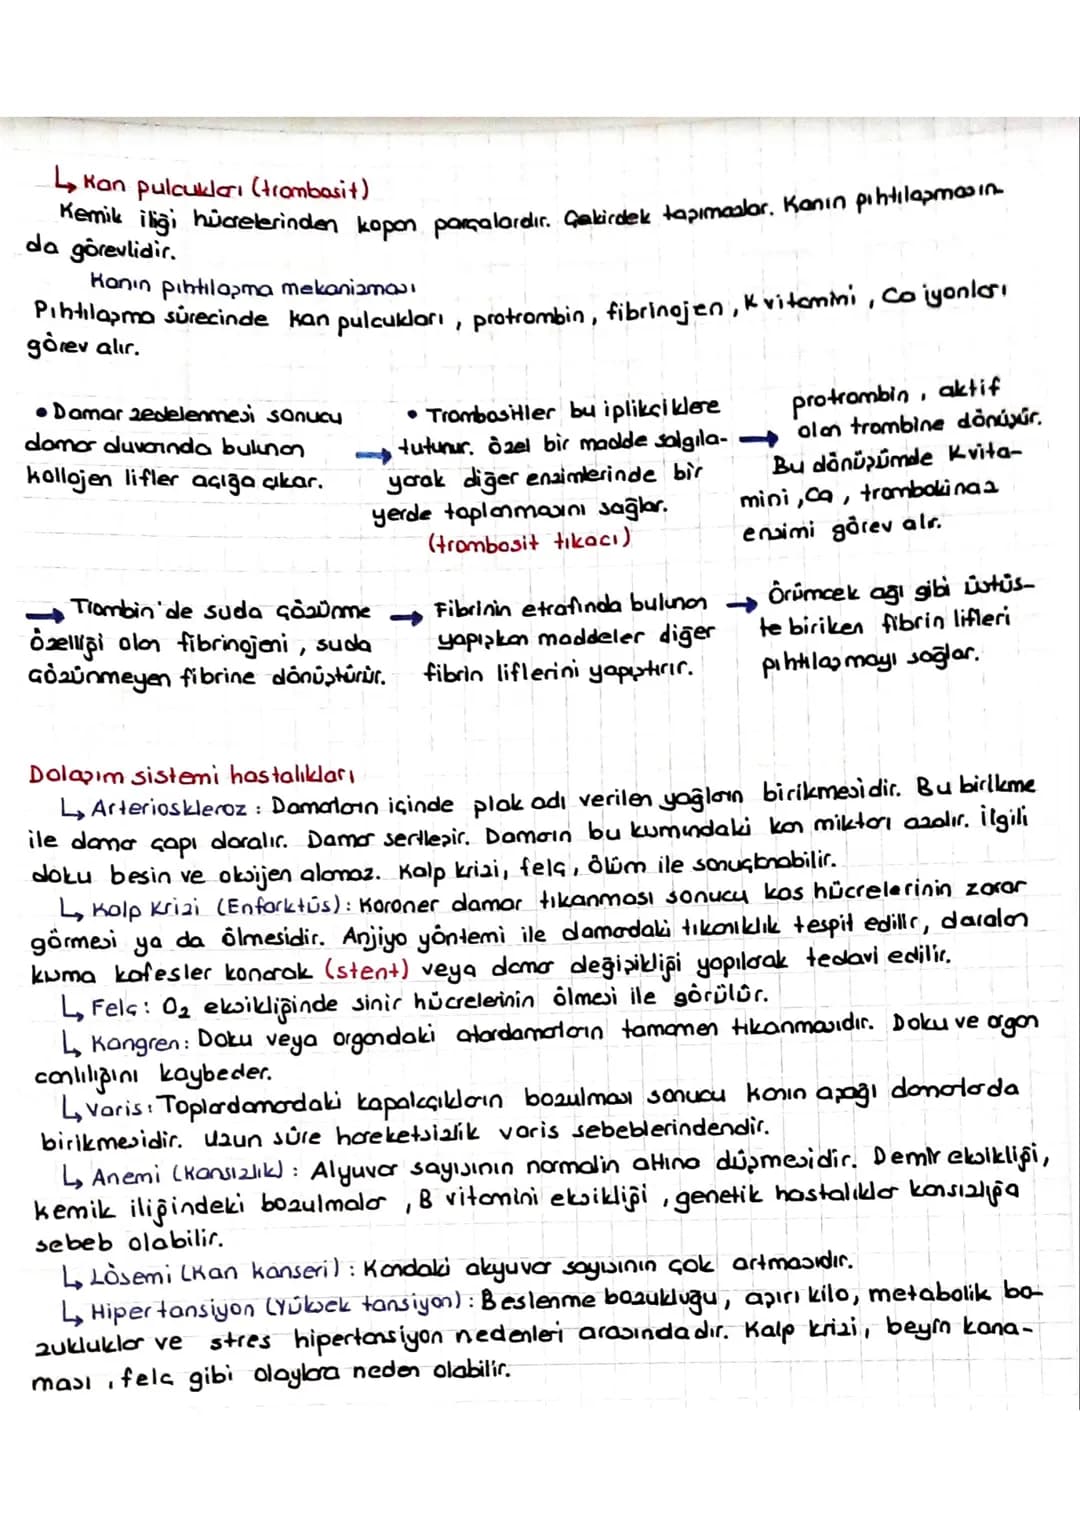 ↳ Kan pulcukları (trombosit)
Kemik iliği hücrelerinden kopan parçalardır. Çekirdek taşımazlar. Kanın pıhtılaşmasın-
da görevlidir.
Kanın pıhtılaşma mekanizması
Pıhtılaşma sürecinde kan pulcukları, protrombin, fibrinojen, K vitamini, Ca iyonları
görev alır.
• Damar zedelenmesi sonucu
damar duvarında bulunan
kollojen lifler açığa çıkar.
• Trombositler bu iplikçiklere
→ tutunur. özel bir madde salgıla-
yarak diğer enzimlerinde bir
yerde toplanmasını sağlar.
(trombosit tıkacı)
protrombin, aktif
→ olan trombine dönüşür.
Bu dönüşümde K vita-
mini, Ca, trombokinaz
enzimi görev alır.
→ Trombin'de suda çözünme
özelliği olan fibrinojeni, suda
çözünmeyen fibrine dönüştürür.
→ Fibrinin etrafında bulunan
yapışkan maddeler diğer
fibrin liflerini yapıştırır.
→ Örümcek ağı gibi üstüs-
te biriken fibrin lifleri
pıhtılaşmayı sağlar.
Dolaşım sistemi hastalıkları
↳ Arterioskleroz : Damarların içinde plak adı verilen yağların birikmesidir. Bu birikme
ile damar çapı daralır. Damar sertleşir. Damarın bu kısmındaki kan miktarı azalır. İlgili
doku besin ve oksijen alamaz. Kalp krizi, felç, ölüm ile sonuçlanabilir.
↳ Kalp Krizi (Enfarktüs): Koroner damar tıkanması sonucu kas hücrelerinin zarar
görmesi ya da ölmesidir. Anjiyo yöntemi ile damardaki tıkanıklık tespit edilir, daralan
kısma kafesler konarak (stent) veya damar değişikliği yapılarak tedavi edilir.
↳ Felç: O₂ eksikliğinde sinir hücrelerinin ölmesi ile görülür.
↳ Kangren: Doku veya organdaki atardamarların tamamen tıkanmasıdır. Doku ve organ
canlılığını kaybeder.
↳ Varis: Toplardamardaki kapakçıkların bozulması sonucu kanın aşağı damarlarda
birikmesidir. Uzun süre hareketsizlik varis sebeblerindendir.
↳ Anemi (Kansızlık) : Alyuvar sayısının normalin altına düşmesidir. Demir eksikliği,
kemik iliğindeki bozulmalar, B vitamini eksikliği, genetik hastalıklar kansızlığa
sebeb olabilir.
↳ Lösemi (Kan kanseri) : Kandaki akyuvar sayısının çok artmasıdır.
↳ Hipertansiyon (Yüksek tansiyon) : Beslenme bozukluğu, aşırı kilo, metabolik bo-
zukluklar ve stres hipertansiyon nedenleri arasındadır. Kalp krizi, beyin kana-
ması, felç gibi olaylara neden olabilir.